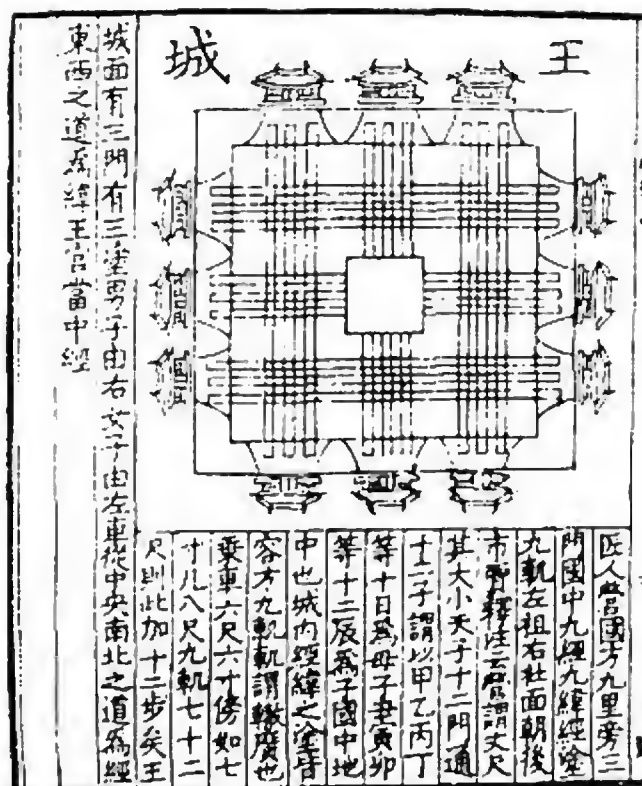 王城
匠人營國方九里旁三
門國中九經九緯經塗
九軌左祖右社面朝後
市釋注云營謂丈尺
其大小天子十二門通
十二子謂以甲乙丙丁
等十日爲母子丑寅卯
等十二辰爲子國中地
中也城内經緯之塗皆
容方九軌軌謂轍廣也
乗車六尺六寸傍加七
寸凡八尺九軌七十二
尺則此加十二步矣王
城面有三門有三塗男子由右女子由左車從中央南北之道爲經
東西之道爲緯王宮當中經